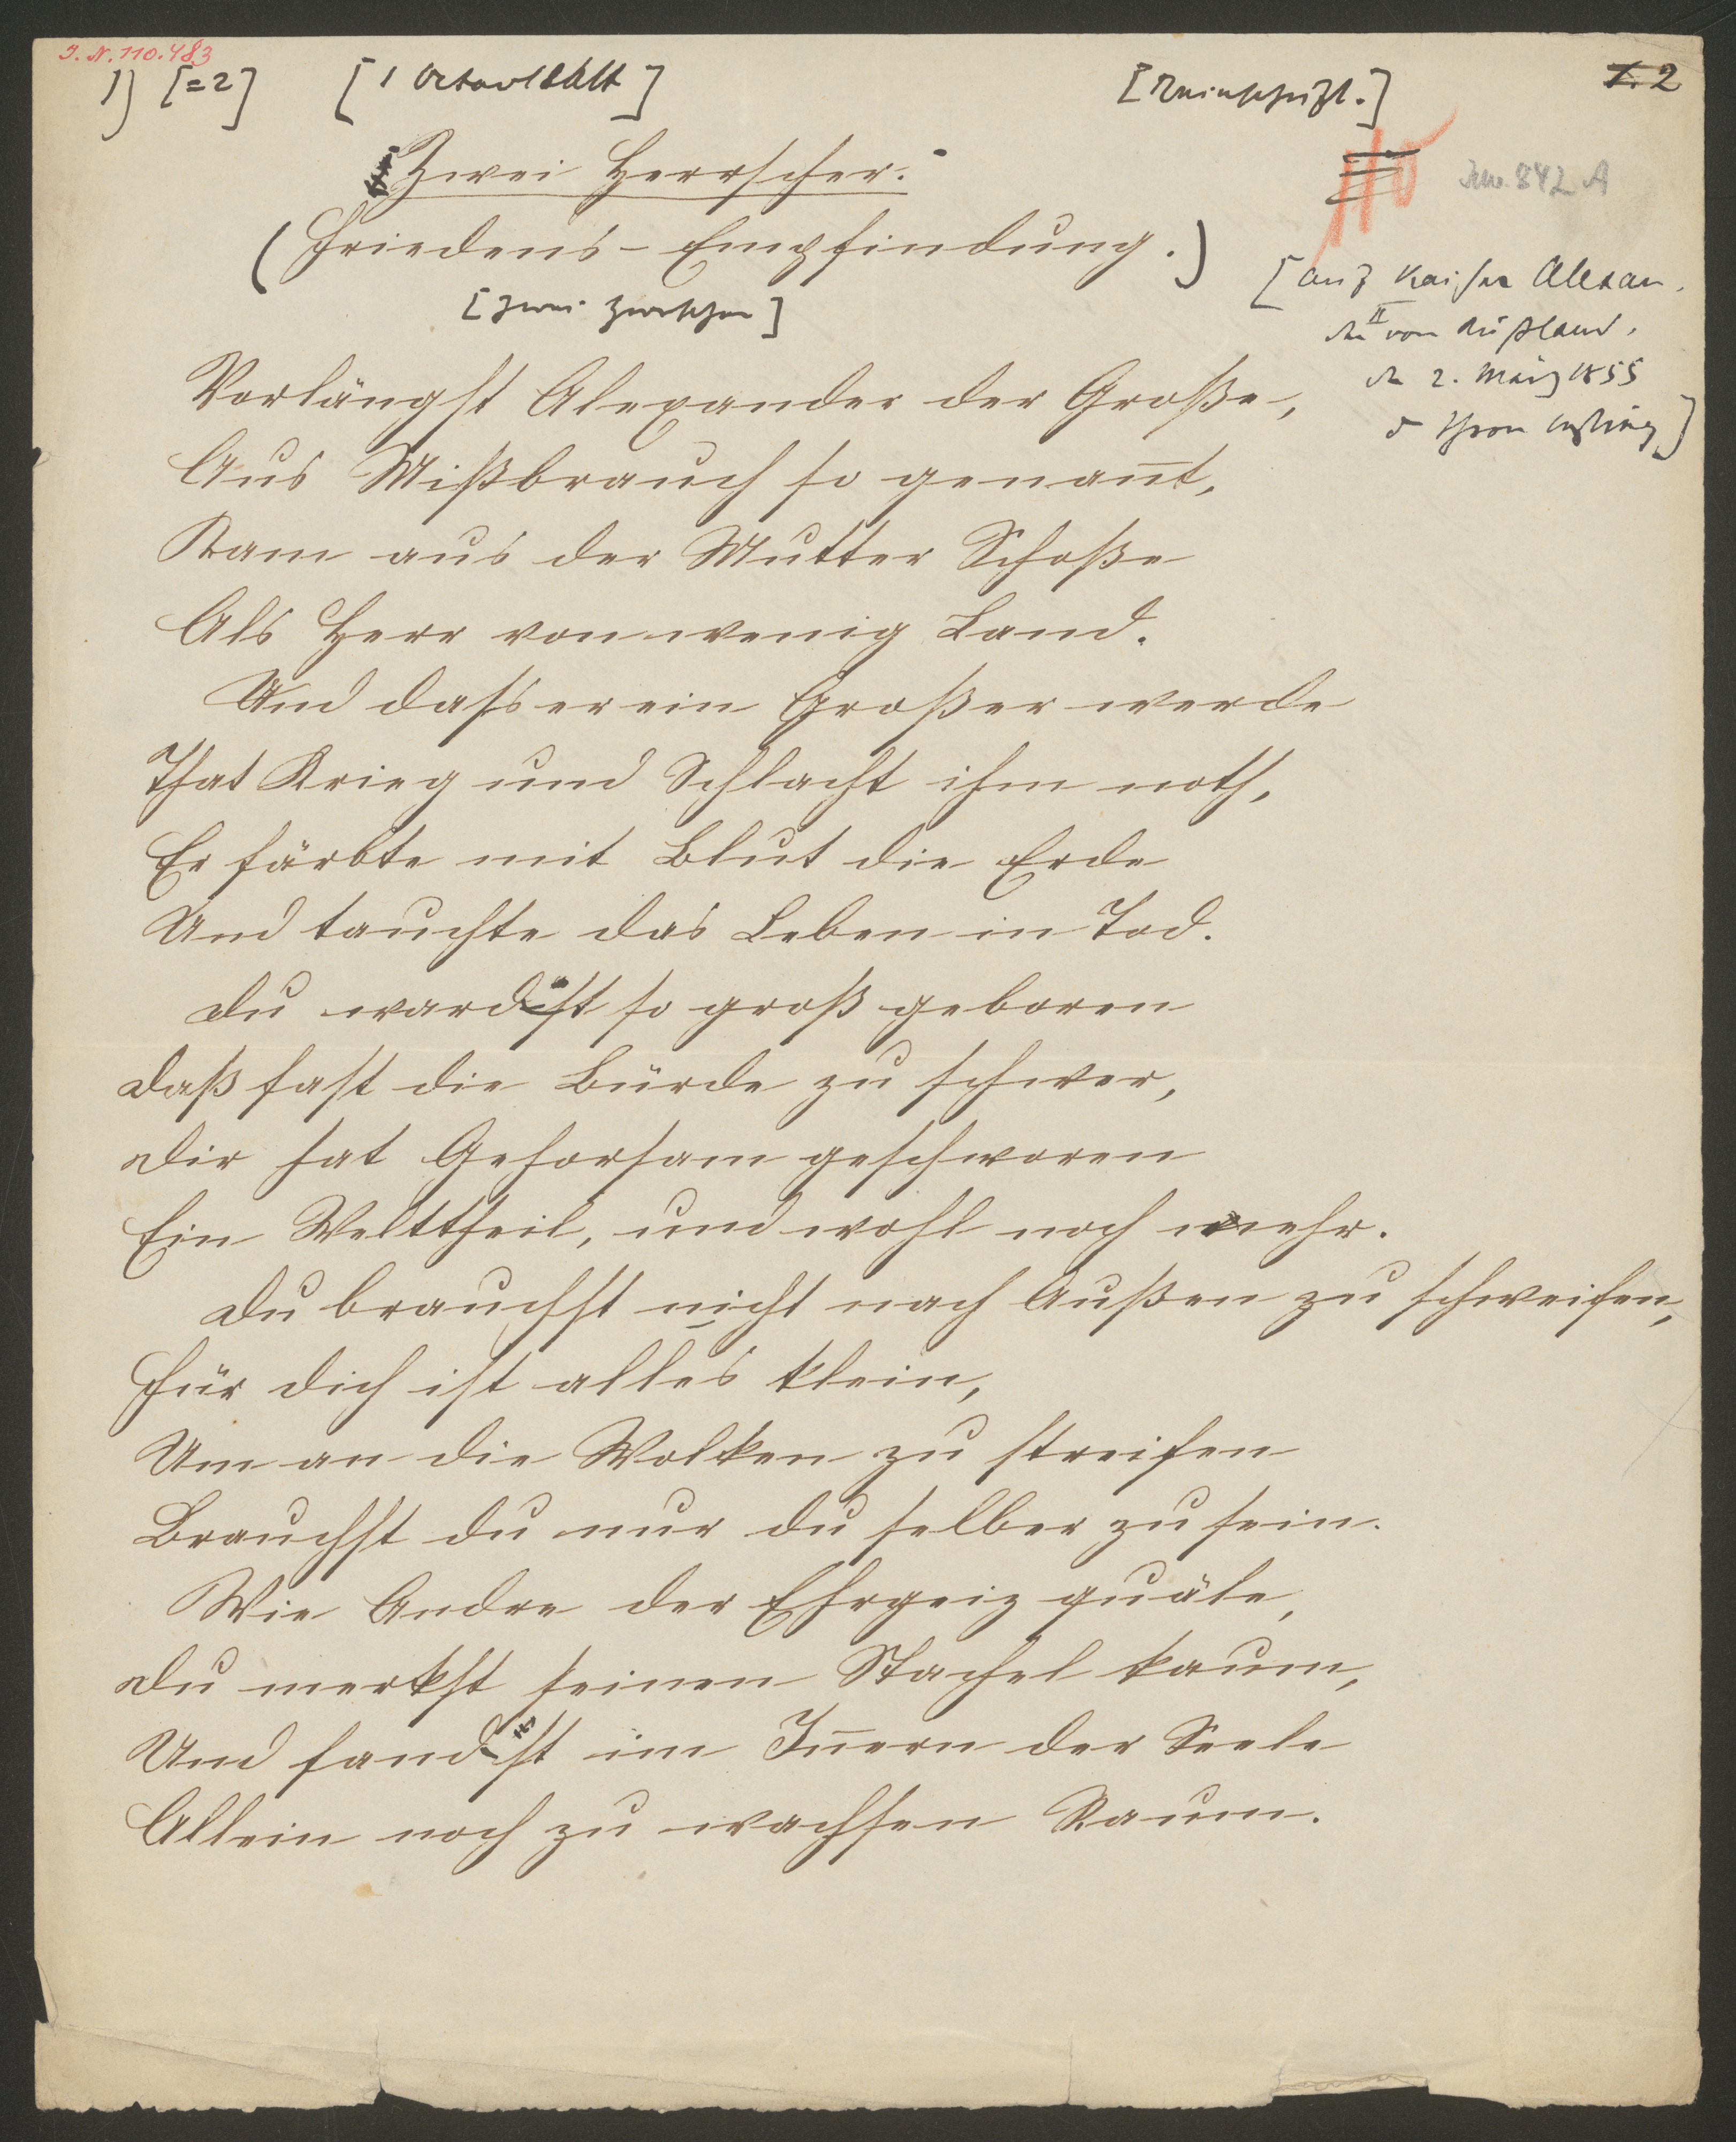 I. N. 110.483
1) [=2] [1 Octavblatt] [Reinschrift.] 1. 2
Zwei Herrscher.
110 842 A
(Friedens-Empfindung.)
[auf Kaiser Alexan-
[Zwei Herrscher]
der II von Rußland,
Vorlängst Alexander der Große,
2. März 1855
Thron bestieg]
Aus Mißbrauch so genan̄t,
Kam aus der Mutter Schoße
Als Herr von wenig Land.
Und dass er ein Großer werde
That Krieg und Schlacht ihm noth,
Er färbte mit Blut die Erde
Und tauchte das Leben in Tod.
Du wardst so groß geboren
Daß fast die Bürde zu schwer,
Dir hat Gehorsam geschworen
Ein Welttheil, und wohl noch mehr.
Du brauchst nicht nach Außen zu schweifen,
Für dich ist alles klein,
Um an die Wolken zu streifen
Brauchst du nur du selber zu sein.
Wie Andre der Ehrgeiz quäle,
Du merkst seinen Stachel kaum,
Und fandst im In̄ern der Seele
Allein noch zu wachsen Raum.